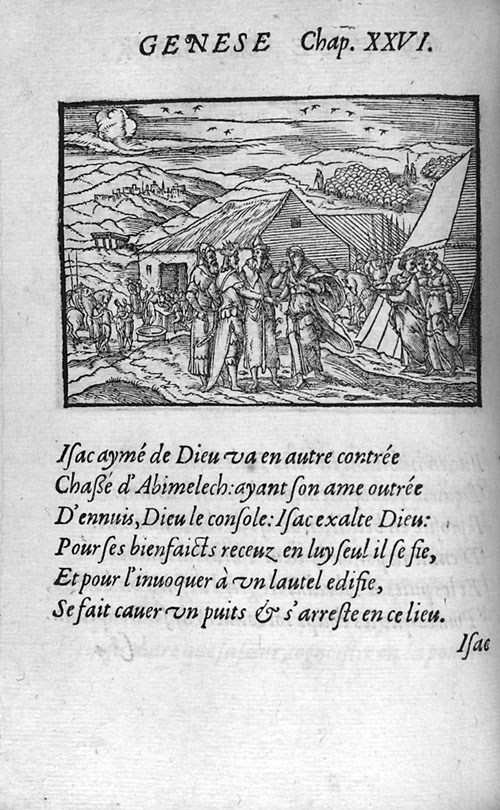 GENESE Chap. XXVI.
Iſac aymé de Dieu va en autre contrée
Chaßé d'Abimelech: ayant ſon ame outrée
D'ennuis, Dieu le conſole: Iſac exalte Dieu:
Pour ſes bienfaicts receuz en luy ſeul il ſe fie,
Et pour l'inuoquer à vn lautel edifie,
Se fait cauer vn puits & s'arreſte en ce lieu.
Iſac